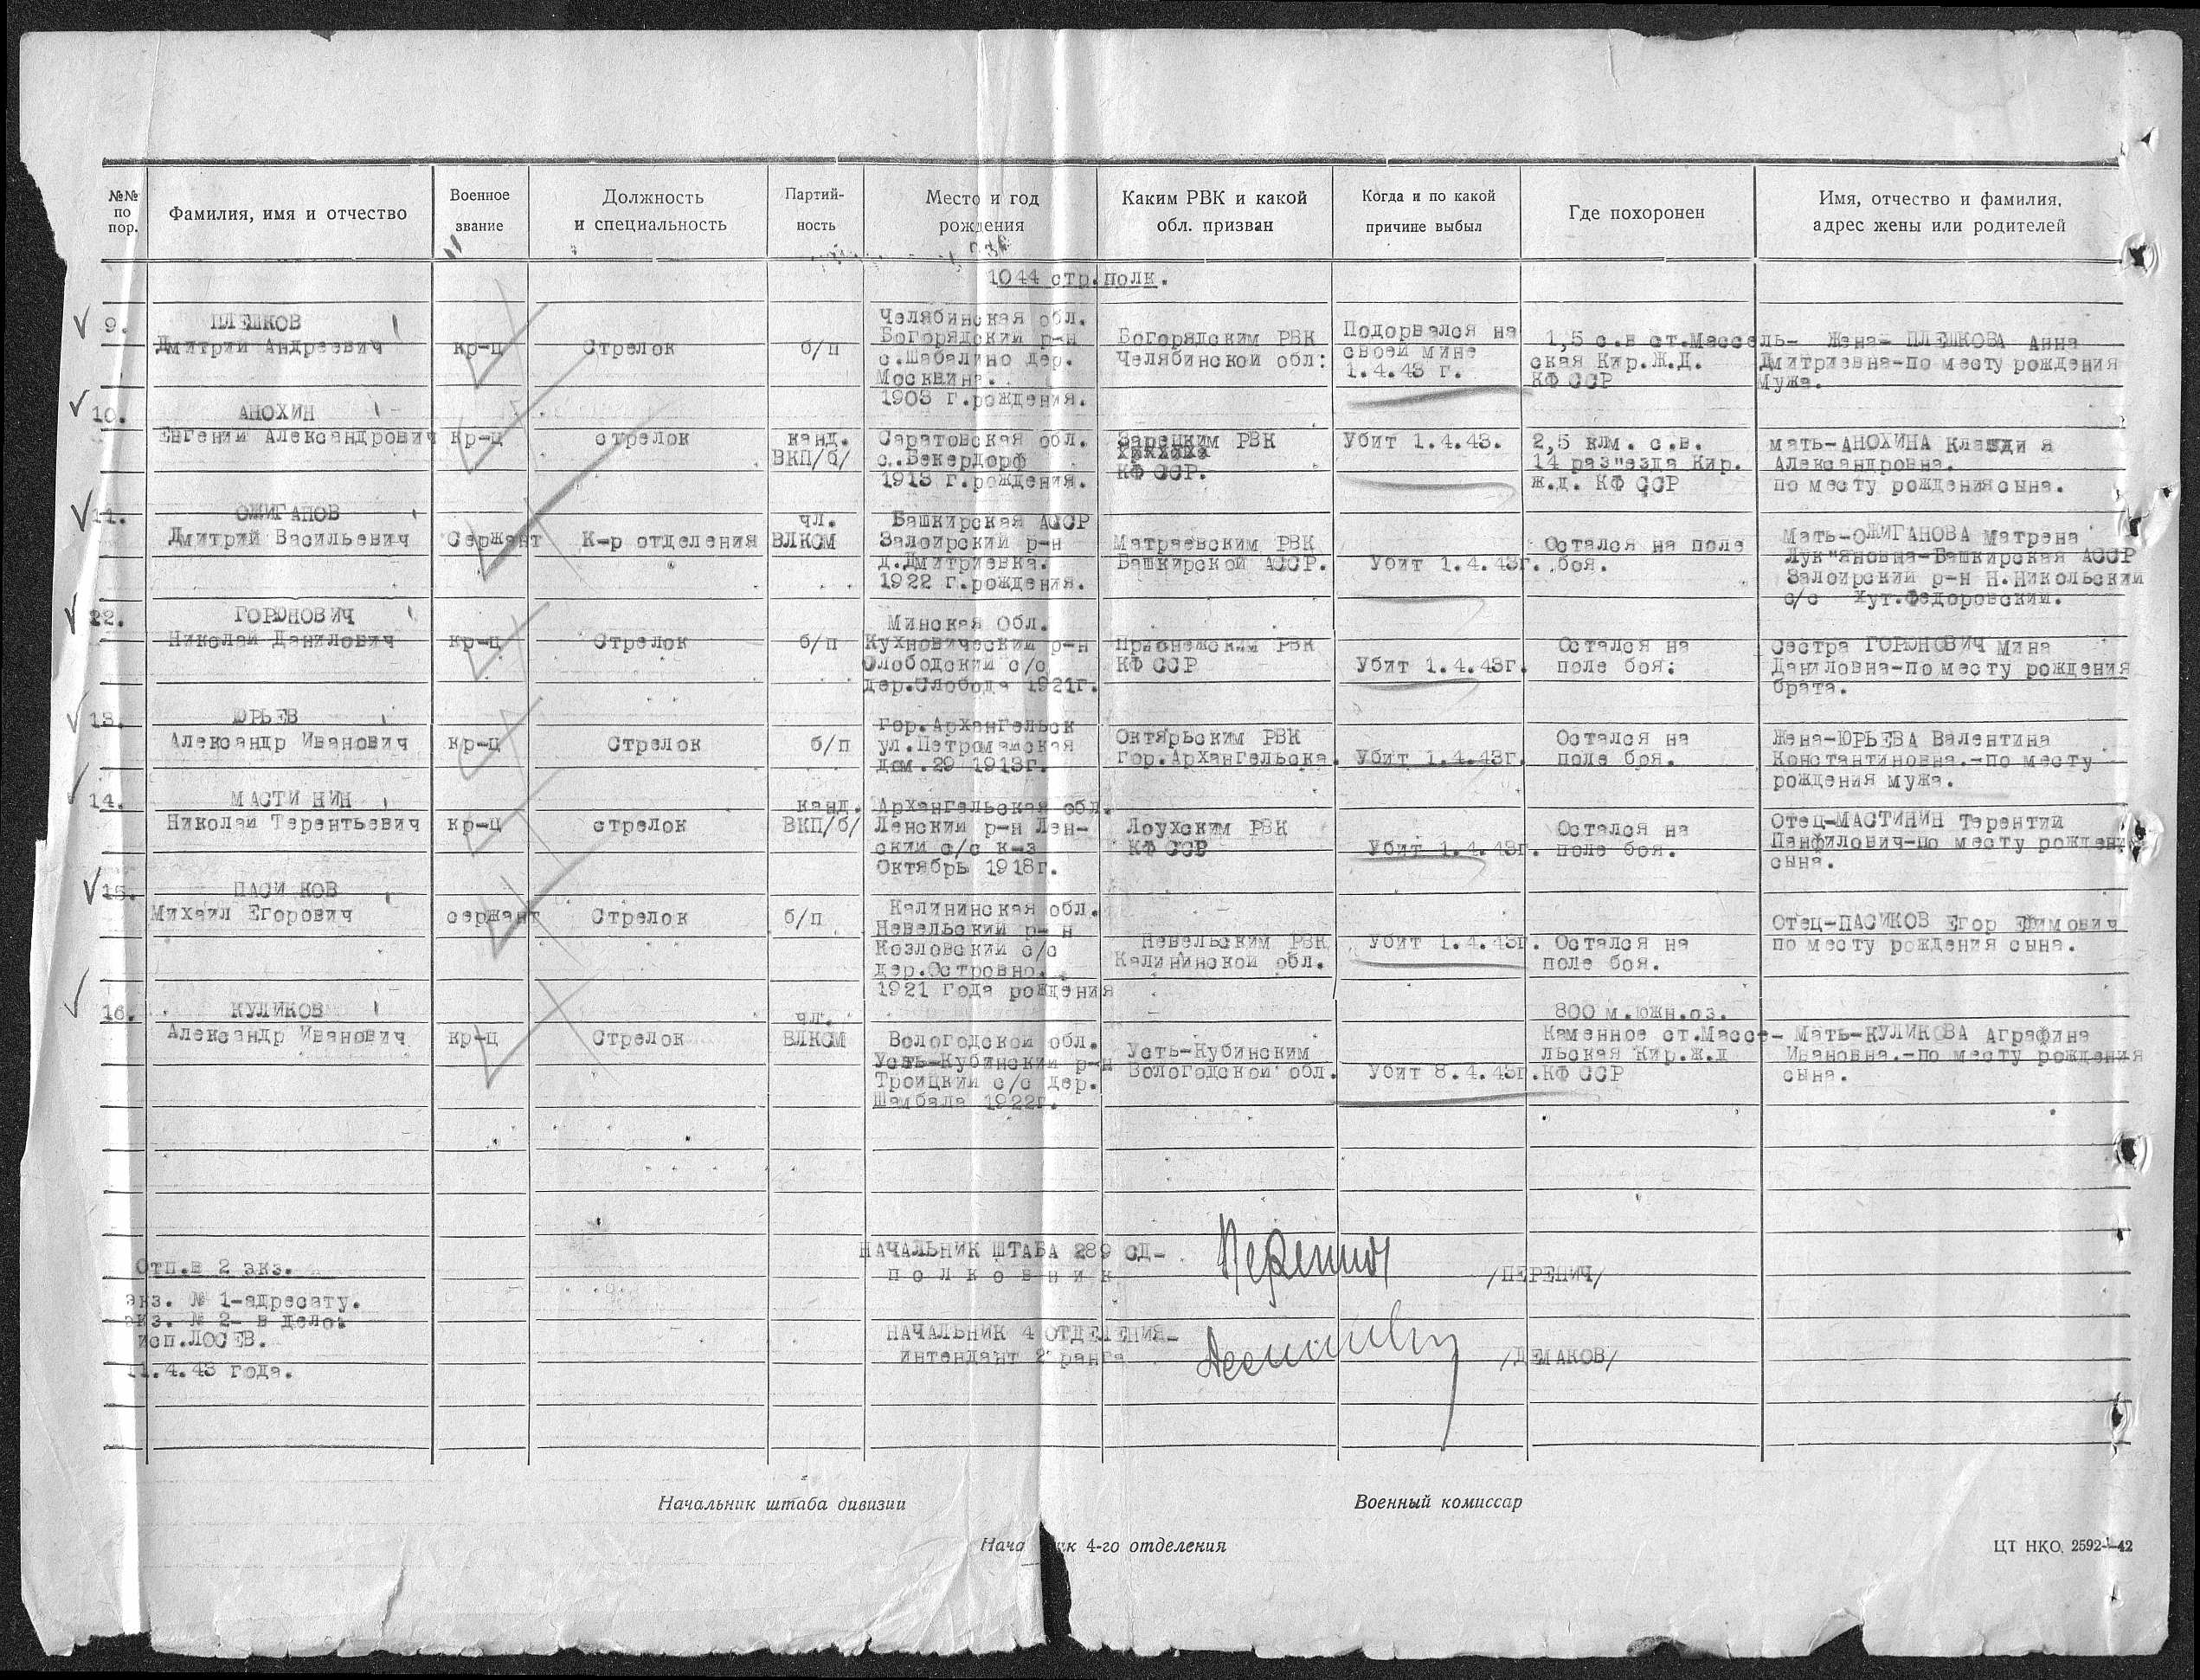 №№ по пор.
Фамилия, имя и отчество
Военное звание
Должность и специальность
Партий- ность
Место и год рождения
Каким РВК и какой обл. призван
Когда и по какой причине выбыл
Где похоронен
Имя, отчество и фамилия, адрес жены или родителей
1044 стр.полк.
9.
ПЛЕШКОВ
Дмитрий Андреевич
кр-ц
Стрелок
б/п
Челябинская обл.
Богорядский р-н
с.Шабалино дер.
Москвина.
1903 г.рождения.
Богорядским РВК
Челябинской обл:
Подорвался на
своей мине
1.4.43 г.
1,5 с.в ст.Массель-
ская Кир.Ж.Д.
КФ ССР
Жена- ПЛЕШКОВА Анна
Дмитриевна-по месту рождения
Мужа.
10.
АНОХИН
Евгений Александрович
кр-ц
стрелок
канд.
ВКП/б/
Саратовская обл.
с.Бекердорф
1913 г.рождения.
Зарецким РВК
КФ ССР.
Убит 1.4.43.
2,5 клм. с.в.
14 раз"езда Кир.
ж.д. КФ ССР
мать-АНОХИНА
Александровна.
по месту рождения сына.
11.
ОЖИГАНОВ
Дмитрий Васильевич
Сержант
К-р отделения
чл.
ВЛКСМ
Башкирская АССР
Залоирский р-н
д.Дмитриевка.
1922 г.рождения.
Матраевским РВК
Башкирской АССР.
Убит 1.4.43г.
Остался на поле
боя.
Мать-ОЖИГАНОВА Матрена
Лук"яновна-Башкирская АССР
Залоирский р-н Н.Никольский
с/с Хут.Федоровский.
12.
ГОРОНОВИЧ
Николай Данилович
кр-ц
Стрелок
б/п
Минская Обл.
Кухновический р-н
Слободский с/с
дер.Слобода 1921г.
Прионежским РВК
КФ ССР
Убит 1.4.43г.
Остался на
поле боя:
Сестра ГОРОНОВИЧ Мина
Даниловна-по месту рождения
брата.
13.
ЮРЬЕВ
Александр Иванович
кр-ц
Стрелок
б/п
гор.Архангельск
ул.Петромайская
дом.29 1913г.
Октябрьским РВК
гор.Архангельска.
Убит 1.4.43г.
Остался на
поле боя.
Жена-ЮРЬЕВА Валентина
Константиновна.-по месту
рождения мужа.
14.
МАСТИНИН
Николай Терентьевич
кр-ц
стрелок
канд.
ВКП/б/
Архангельская обл.
Ленский р-н Лен-
ский с/с к-з
Октябрь 1918г.
Лоухским РВК
КФ ССР
Убит 1.4.43г.
Остался на
поле боя.
Отец-МАСТИНИН Терентий
Панфилович-по месту рождени
сына.
15.
ПАСИКОВ
Михаил Егорович
сержант
Стрелок
б/п
Калининская обл.
Невельский р-н
Козловский с/с
дер.Островно.
1921 года рождения
Невельским РВК
Калининской обл.
Убит 1.4.43г.
Остался на
поле боя.
Отец-ПАСИКОВ Егор Ефимович
по месту рождения сына.
16.
КУЛИКОВ
Александр Иванович
кр-ц
Стрелок
чл.
ВЛКСМ
Вологодской обл.
Усть-Кубинский р-н
Троицкий с/с дер.
Шамбала 1922г.
Усть-Кубинским
Вологодской обл.
Убит 8.4.43г.
800 м.южн.оз.
Каменное ст.Массе-
льская Кир.ж.д
КФ ССР
Мать-КУЛИКОВА Аграфина
Ивановна.-по месту рождения
сына.
НАЧАЛЬНИК ШТАБА 289 СД-
полковник
/ПЕРЕПИЧ/
Отп.в 2 экз.
экз. № 1-адресату.
экз. № 2- в дело.
исп.ЛОСЕВ.
11.4.43 года.
НАЧАЛЬНИК 4 ОТДЕЛЕНИЯ-
интендант 2 ранга
/ДЕМАКОВ/
Начальник штаба дивизии
Военный комиссар
Нача ик 4-го отделения
ЦТ НКО. 2592- 42